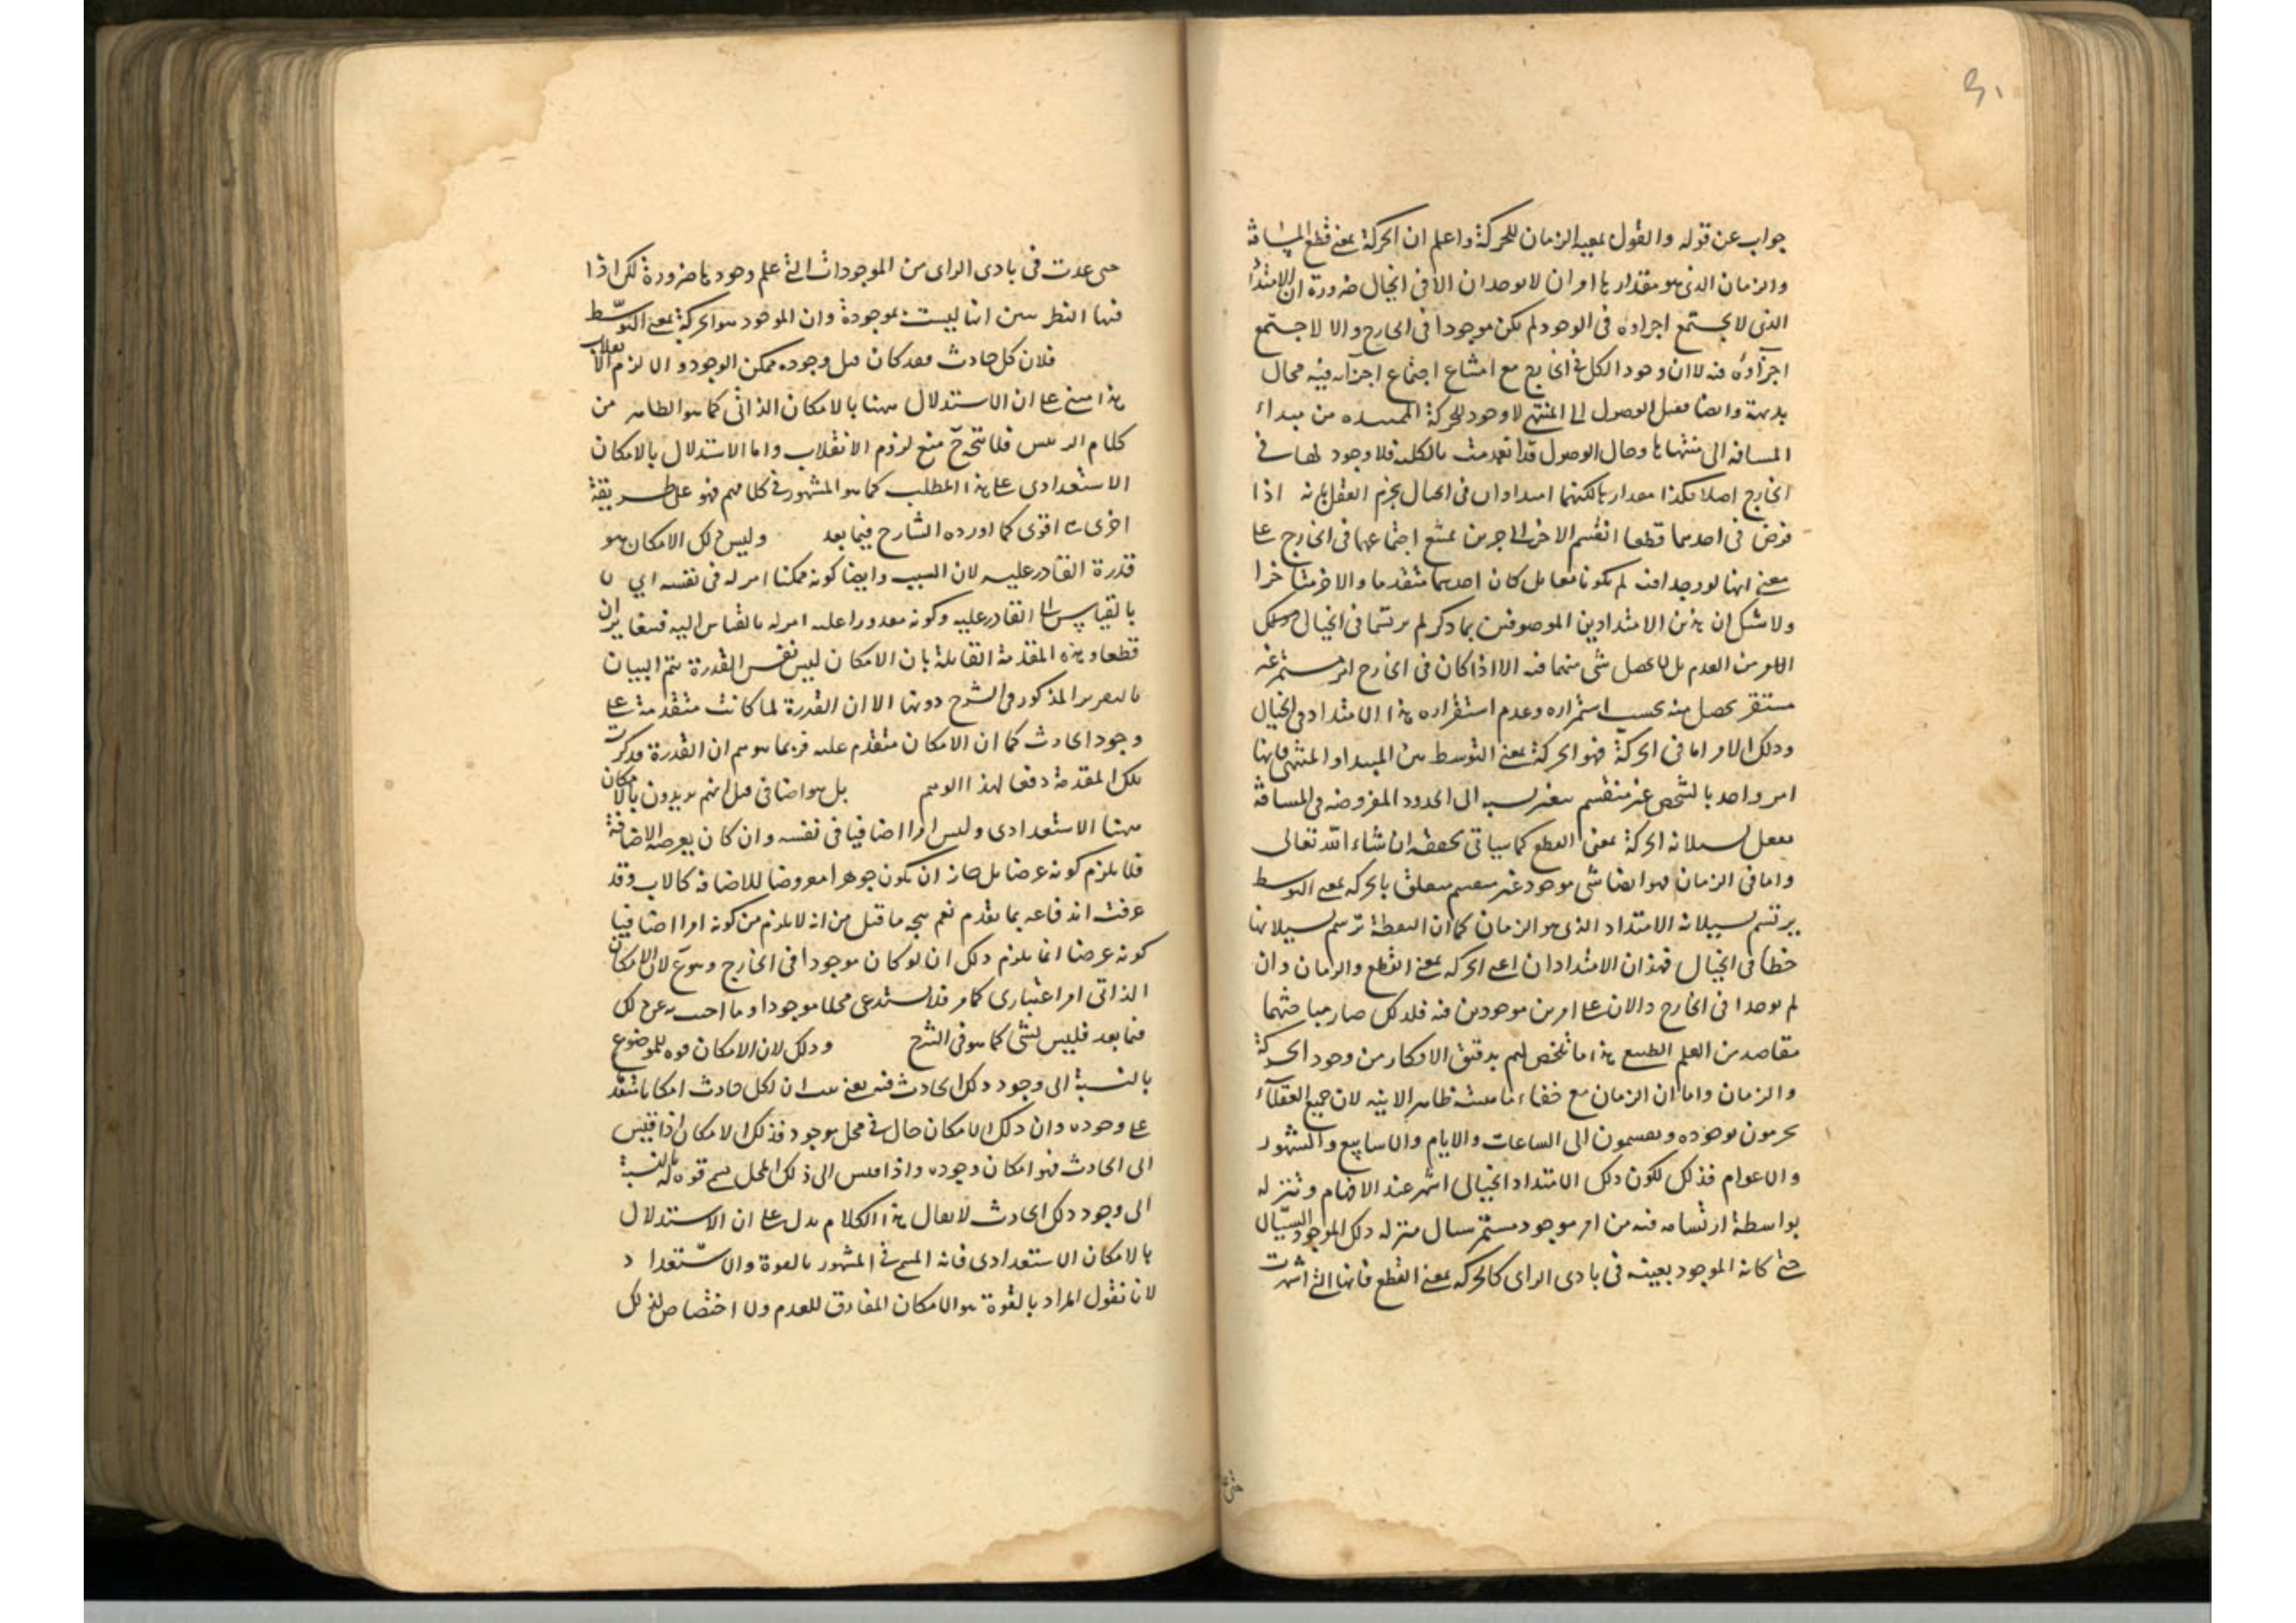 ٩١
جواب عن قوله والقول بمعية الزمان للحركة واعلم ان الحركة بمعنى قطع المسافة
والزمان الذى هو مقدارها امران لا يوجدان الا فى الخيال ضرورة ان الامتداد
الذى لا يجتمع اجزاؤه فى الوجود لم يكن موجودا فى الخارج والا لاجتمع
اجزاؤه فيه لان وجود الكل فى الخارج مع امتناع اجتماع اجزائه فيه محال
بديهة وايضا فقبل الوصول الى المنتهى لا وجود للحركة الممتدة من مبداء
المسافة الى منتهاها وحال الوصول قد انعدمت بالكلية فلا وجود لها فى
الخارج اصلا هكذا مقدارها لكنهما امتدادان فى الخيال يجزم العقل بانه اذا
فرض فى احدهما قطعا انقسم الاخر الى جزئين يمتنع اجتماعهما فى الخارج على
معنى انهما لو وجدا فيه لم يكونا معا بل كان احدهما متقدما والاخر متاخرا
ولا شك ان هذين الامتدادين الموصوفين بما ذكر لم يرتسما فى الخيال
من العدم بل لا يحصل شى منهما فيه الا اذا كان فى الخارج امر مستمر غير
مستقر يحصل منه بحسب استمراره وعدم استقراره هذا الامتداد فى الخيال
وذلك الامر اما فى الحركة فهو الحركة بمعنى التوسط بين المبداء والمنتهى فانها
امر واحد بالشخص غير منقسم يتغير نسبه الى الحدود المفروضة فى المسافة
يفعل بسيلانه الحركة بمعنى القطع كما سياتى تحقيقه ان شاء الله تعالى
واما فى الزمان فهو ايضا شى موجود غير منقسم متعلق بالحركة بمعنى التوسط
يرتسم بسيلانه الامتداد الذى هو الزمان كما ان النقطة ترسم بسيلانها
خطا فى الخيال فهذان الامتدادان اعنى الحركة بمعنى القطع والزمان وان
لم يوجدا فى الخارج دالان على امرين موجودين فيه فلذلك صار مباحثهما
مقاصد من العلم الطبيعى هذا ما تلخص لهم بدقيق الافكار من وجود الحركة
والزمان واما ان الزمان مع خفاء ماهيته ظاهر الانية لان جميع العقلاء
يجزمون بوجوده ويقسمون الى الساعات والايام والاسابيع والشهور
والاعوام فذلك لكون ذلك الامتداد الخيالى اشهر عند الافهام وتنزله
بواسطة ارتسامه فيه من امر موجود مستمر سيال منزله ذلك الموجود السيال
حتى كانه الموجود بعينه فى بادى الراى كالحركة بمعنى القطع فانها التى اشهرت
حتى عدت فى بادى الراى من الموجودات التى علم وجودها ضرورة لكن اذا
فيها النظر تبين انها ليست بموجودة وان الموجود هو الحركة بمعنى التوسط
فلان كل حادث فقد كان قبل وجوده ممكن الوجود والا لزم الانقلاب
هذا مبنى على ان الاستدلال ههنا بالامكان الذاتى كما هو الظاهر من
كلام الرئيس فلا يتجه ح منع لزوم الانقلاب واما الاستدلال بالامكان
الاستعدادى على هذا المطلب كما هو المشهور فى كلامهم فهو على طريقة
اخرى اقوى كما اورده الشارح فيما بعد وليس ذلك الامكان هو
قدرة القادر عليه لان السبب وايضا كونه ممكنا امر له فى نفسه اى لا
بالقياس الى القادر عليه وكونه مقدورا عليه امر له بالقياس اليه فيتغايران
قطعا وهذه المقدمة القائلة بان الامكان ليس نفس القدرة يتم البيان
بالتقرير المذكور فى الشرح دونها الا ان القدرة لما كانت متقدمة على
وجود الحادث كما ان الامكان متقدم عليه فربما يتوهم ان القدرة فذكرت
تلك المقدمة دفعا لهذا الوهم بل هو اضافى قيل انهم يريدون بالامكان
ههنا الاستعدادى وليس امرا اضافيا فى نفسه وان كان يعرضه الاضافة
فلا يلزم كونه عرضا بل جاز ان يكون جوهرا معروضا للاضافة كالاب وقد
عرفت اندفاعه بما تقدم نعم يتجه ما قيل من انه لا يلزم من كونه امرا اضافيا
كونه عرضا انما يلزم ذلك ان لو كان موجودا فى الخارج وهو ع لان الامكان
الذاتى امر اعتبارى كما مر فلا يستدعى محلا موجودا وما اجيب به عن ذلك
فيما بعد فليس بشى كما هو فى الشرح وذلك لان الامكان قوه للموضوع
بالنسبة الى وجود ذلك الحادث فيه يعنى ان لكل حادث امكانا متقدما
على وجوده وان ذلك الامكان حال فى محل موجود فذلك الامكان اذا قيس
الى الحادث فهو امكان وجوده واذا قيس الى ذلك المحل سمى قوه له بالنسبة
الى وجود ذلك الحادث لا يقال هذا الكلام يدل على ان الاستدلال
بالامكان الاستعدادى فانه المسمى فى المشهور بالقوة والاستعداد
لانا نقول المراد بالقوة هو الامكان المفارق للعدم ولا اختصاص لذلك